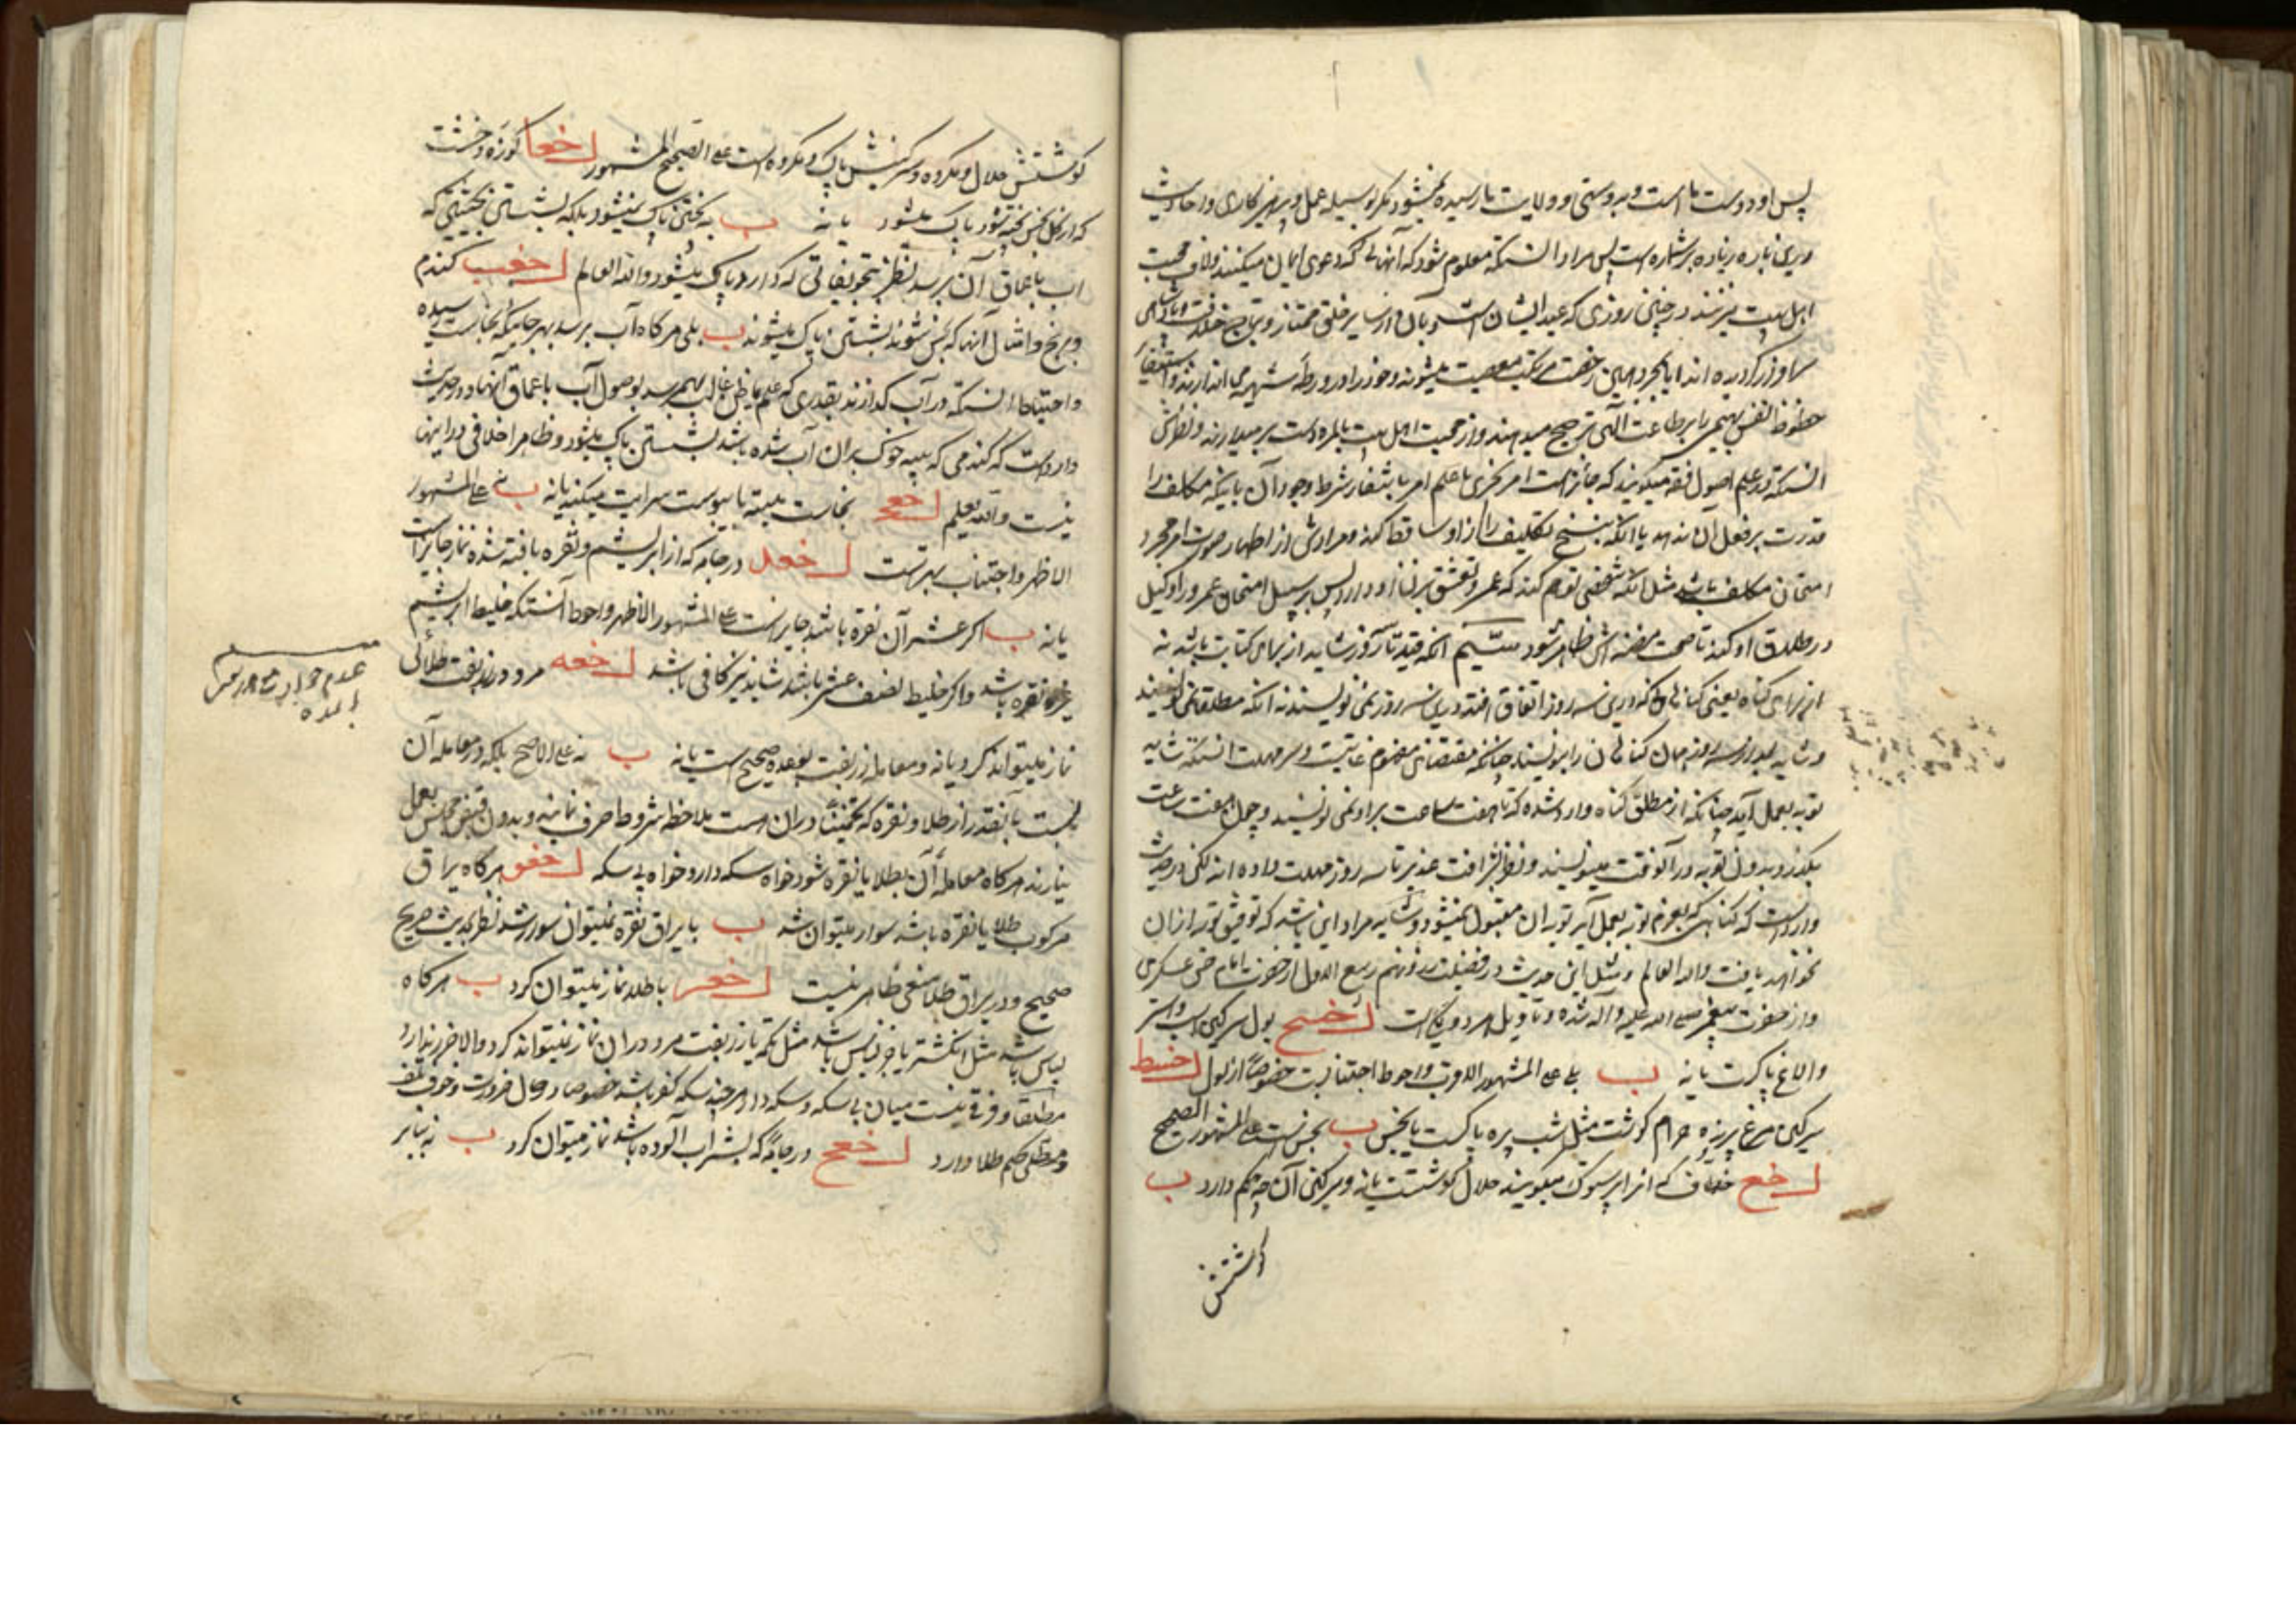 پس او دوست ما است و بدوستی و ولایت ما رسیده نمیشود مگر بوسیله عمل و پرهیزکاری و احادیث
درین باره زیاده بر شماره است پس مراد آنستکه معلوم شود که آنهائی که دعوی ایمان میکنند و لاف محبت
اهل بیت میزنند در چنین روزی که عید ایشان است و بآن از سایر خلق ممتاز و بتاج خلافت و پادشاهی
سرافراز گردیده اند آیا بمجرد همین رخصت مرتکب معصیت میشوند و خود را در ورطه شبهه می اندازند و استیفای
حظوظ نفس بهیمی را بر طاعت الهی ترجیح میدهند و از محبت اهل بیت بالمره دست برمیدارند و نظرش
آنستکه در علم اصول فقه میگویند که جائز است امر بچیزی با علم امر بانتفاء شرط وجود آن باینکه مکلف را
قدرت بر فعل آن ندهد یا آنکه بنسخ تکلیف را از او ساقط کند و مرادش از اظهار صورت امر مجرد
امتحان مکلف باشد مثل آنکه شخصی توهم کند که عمرو تعشق بزن او دارد پس بر سبیل امتحان عمرو را وکیل
در طلاق او کند تا صحت مظنه اش ظاهر شود سیم آنکه قید تا سه روز شاید از برای کتابت باشد نه
از برای گناه یعنی گناهانی که درین سه روز اتفاق افتد درین سه روز نمی نویسند نه آنکه مطلقا نمی نویسند
و شاید بعد از سه روز همان گناهان را بنویسند چنانکه مقتضای مفهوم غایتست و سر مهلت آنستکه شاید
توبه بعمل آید چنانکه از مطلق گناه وارد شده که تا هفت ساعت بر او نمی نویسند و چون هفت ساعت
بگذرد بدون توبه در آنوقت مینویسند و نظر بشرافت غدیر تا سه روز مهلت داده اند لکن در حدیث
وارد است که گناهی که بعزم توبه بعمل آید توبه آن مقبول نمیشود و شاید مراد این باشد که توفیق توبه از آن
نخواهد یافت والله العالم و مثل این حدیث در فضیلت روز نهم ربیع الاول از حضرت امام حسن عسکری
و از حضرت پیغمبر صلی الله علیه و آله شده و تأویل هر دو یکیست خسح بول سرکین اسب و استر
و الاغ پاکست یا نه ب بلی علی المشهور الاقوی و احوط اجتنابست خصوصاً از بول خسط
سرکین مرغ پرنده حرام گوشت مثل شب پره پاکست یا نجس ب نجس است علی المشهور الصحیح
خع خطاف که انرا پرستوک میگویند حلال گوشتست یا نه و سرکین آن چه حکم دارد ب
گوشتش
گوشتش حلال و مکروه و سرکینش پاک و مکروه است علی الصحیح المشهور خعا کوزه و خشت
که از گل نجس پخته شود پاک میشود یا نه ب به پختن پاک نمیشود بلکه بشستن بحیثیتی که
آب باعماق آن برسد بنظر بتجویفاتی که دارد پاک میشود والله العالم خعب گندم
و برنج و امثال آنها که نجس شوند بشستن پاک میشوند ب بلی هر گاه آب برسد بهر جائیکه نجاست رسیده
و احتیاط آنستکه در آب گذارند بقدری که علم یا ظن غالب بهم رسد بوصول آب باعماق آنها و در حدیث
وارد است که گندمی که پیه خوک بر آن آب شده باشد بشستن پاک میشود و ظاهرا خلافی در اینها
نیست والله یعلم خعج نجاست میته با یبوست سرایت میکند یا نه ب نه علی المشهور
الاظهر و اجتناب بهتر است خعد در جامه که از ابریشم و نقره بافته شده نماز جایز است
یا نه ب اگر عشر آن نقره باشد جایز است علی المشهور الاظهر و احوط آنستکه خلیط ابریشم
غیر نقره باشد و اگر خلیط نصف عشر باشد شاید نیز کافی باشد خعه مرد در زربفت طلائی
نماز میتواند کرد یا نه و معامله زربفت بوعده صحیح است یا نه ب نه علی الاصح بلکه در معامله آن
نسبت بآنقدر از طلا و نقره که تخمیناً در آن هست ملاحظه شروط صرف نمایند و بدون قبض مجلس بعمل
نیارند هر گاه معامله آن بطلا یا نقره شود خواه سکه دار و خواه بی سکه خعو هر گاه یراق
مرکوب طلا یا نقره باشد سوار میتوان شد ب با یراق نقره نمیتوان سوار شد نظر بحدیث صریح
صحیح و در یراق طلا منعی ظاهر نیست خعز با طلا نماز میتوان کرد ب هر گاه
لباس باشد مثل انگشتر یا جزء لباس باشد مثل تکمه یا زربفت مرد در آن نماز نمیتواند کرد والا ضرر ندارد
مطلقا و فرقی نیست میان بی سکه و سکه دار هر چند سکه کفر باشد خصوصا در حال ضرورت و خوف تلف
و مطلی حکم طلا دارد خعح در جامه که بشراب آلوده باشد نماز میتوان کرد ب نه بنا بر